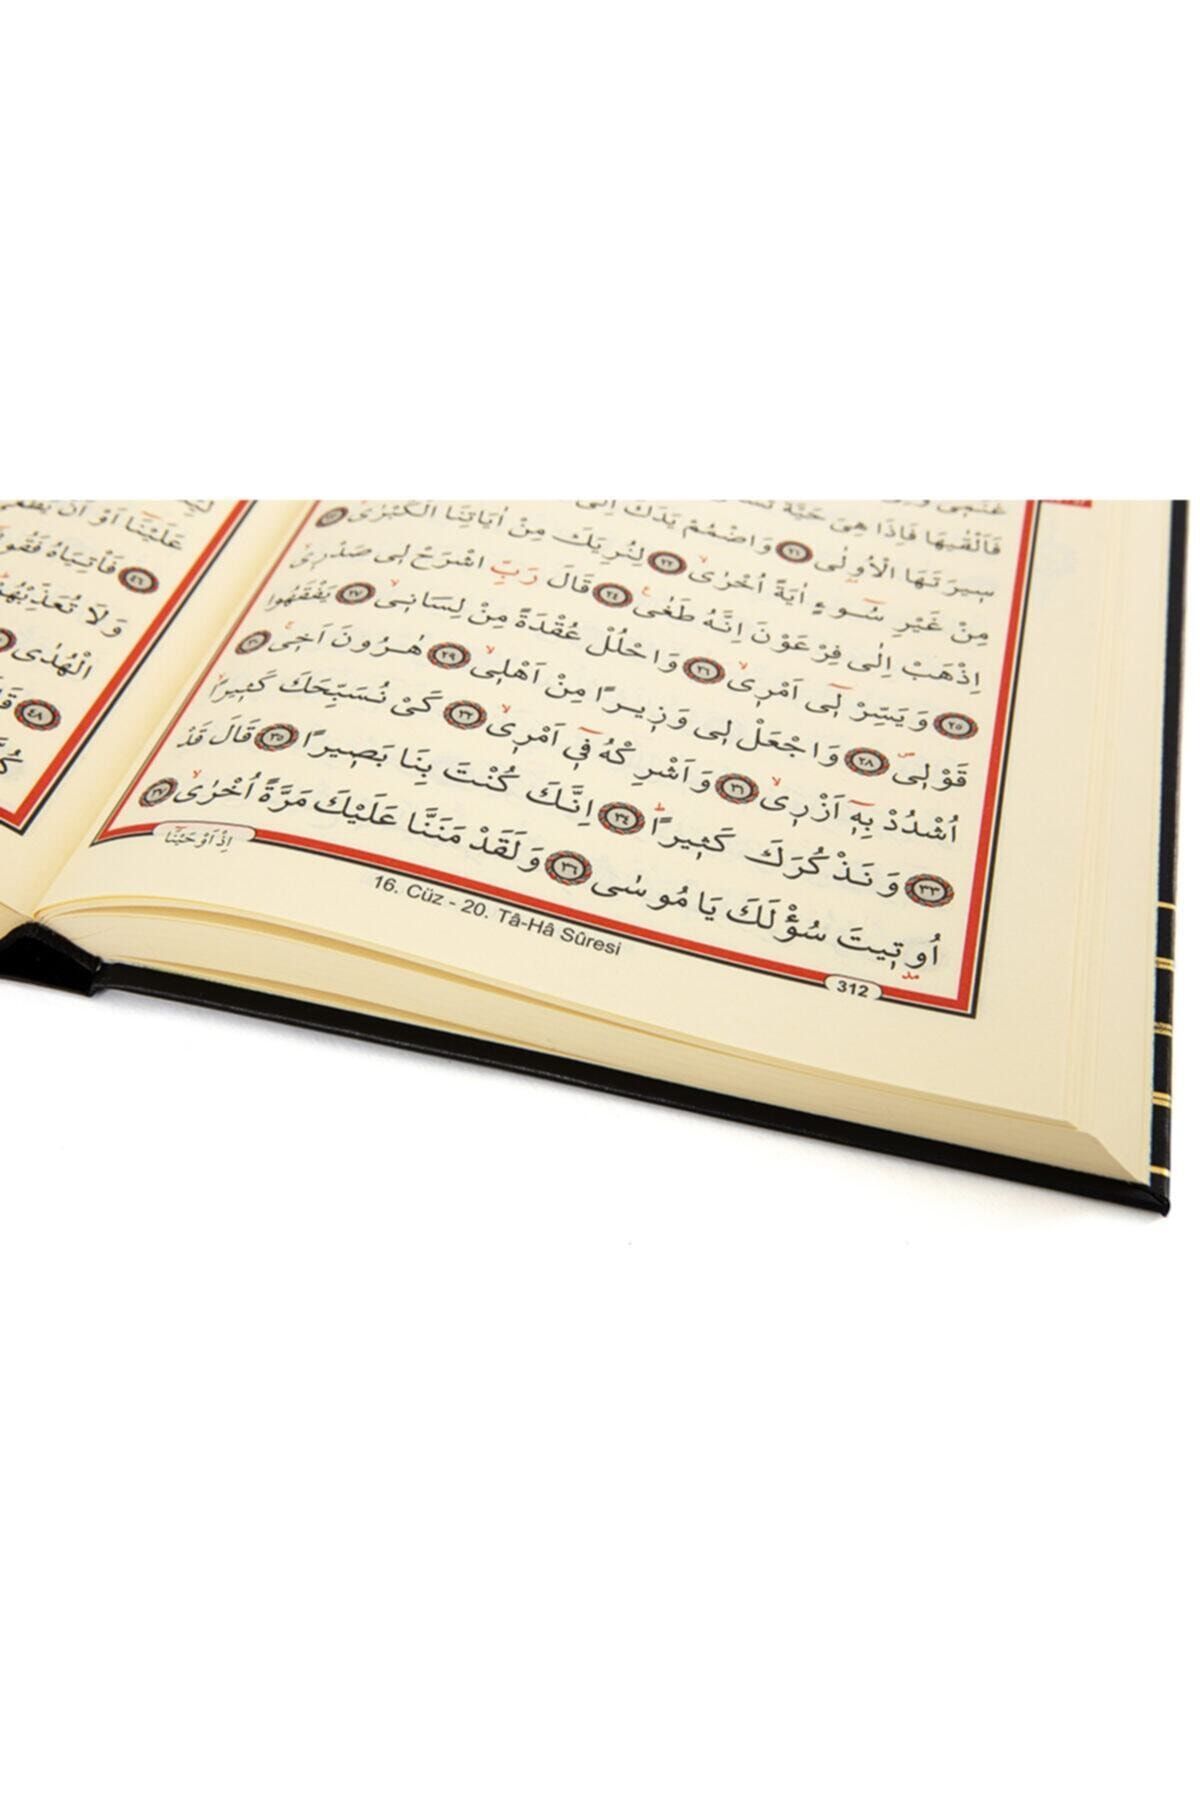 فَاَلْقٰيهَا فَاِذَا هِىَ حَيَّةٌ
سٖيرَتَهَا الْاُولٰى ﴿٢١﴾ وَاضْمُمْ يَدَكَ اِلٰى
مِنْ غَيْرِ سُٓوءٍ اٰيَةً اُخْرٰى ﴿٢٢﴾ لِنُرِيَكَ مِنْ اٰيَاتِنَا الْكُبْرٰى ﴿٢٣﴾
اِذْهَبْ اِلٰى فِرْعَوْنَ اِنَّهُ طَغٰى ﴿٢٤﴾ قَالَ رَبِّ اشْرَحْ لٖى صَدْرٖى
﴿٢٥﴾ وَيَسِّرْ لٖٓى اَمْرٖى ﴿٢٦﴾ وَاحْلُلْ عُقْدَةً مِنْ لِسَانٖى ﴿٢٧﴾ يَفْقَهُوا
قَوْلٖى ﴿٢٨﴾ وَاجْعَلْ لٖى وَزٖيرًا مِنْ اَهْلٖى ﴿٢٩﴾ هٰرُونَ اَخٖى ﴿٣٠﴾
اُشْدُدْ بِهٖٓ اَزْرٖى ﴿٣١﴾ وَاَشْرِكْهُ فٖٓى اَمْرٖى ﴿٣٢﴾ كَىْ نُسَبِّحَكَ كَثٖيرًا
﴿٣٣﴾ وَنَذْكُرَكَ كَثٖيرًا ﴿٣٤﴾ اِنَّكَ كُنْتَ بِنَا بَصٖيرًا ﴿٣٥﴾ قَالَ قَدْ
اُوتٖيتَ سُؤْلَكَ يَا مُوسٰى ﴿٣٦﴾ وَلَقَدْ مَنَنَّا عَلَيْكَ مَرَّةً اُخْرٰى ﴿٣٧﴾
اِذْ اَوْحَيْنَٓا
16. Cüz - 20. Tâ-Hâ Sûresi
312
عَلَيْنَٓا اَوْ اَنْ يَطْغٰى
﴿٤٦﴾ فَاْتِيَاهُ
وَلَا تُعَذِّبْهُمْ
الْهُدٰى
﴿٤٨﴾